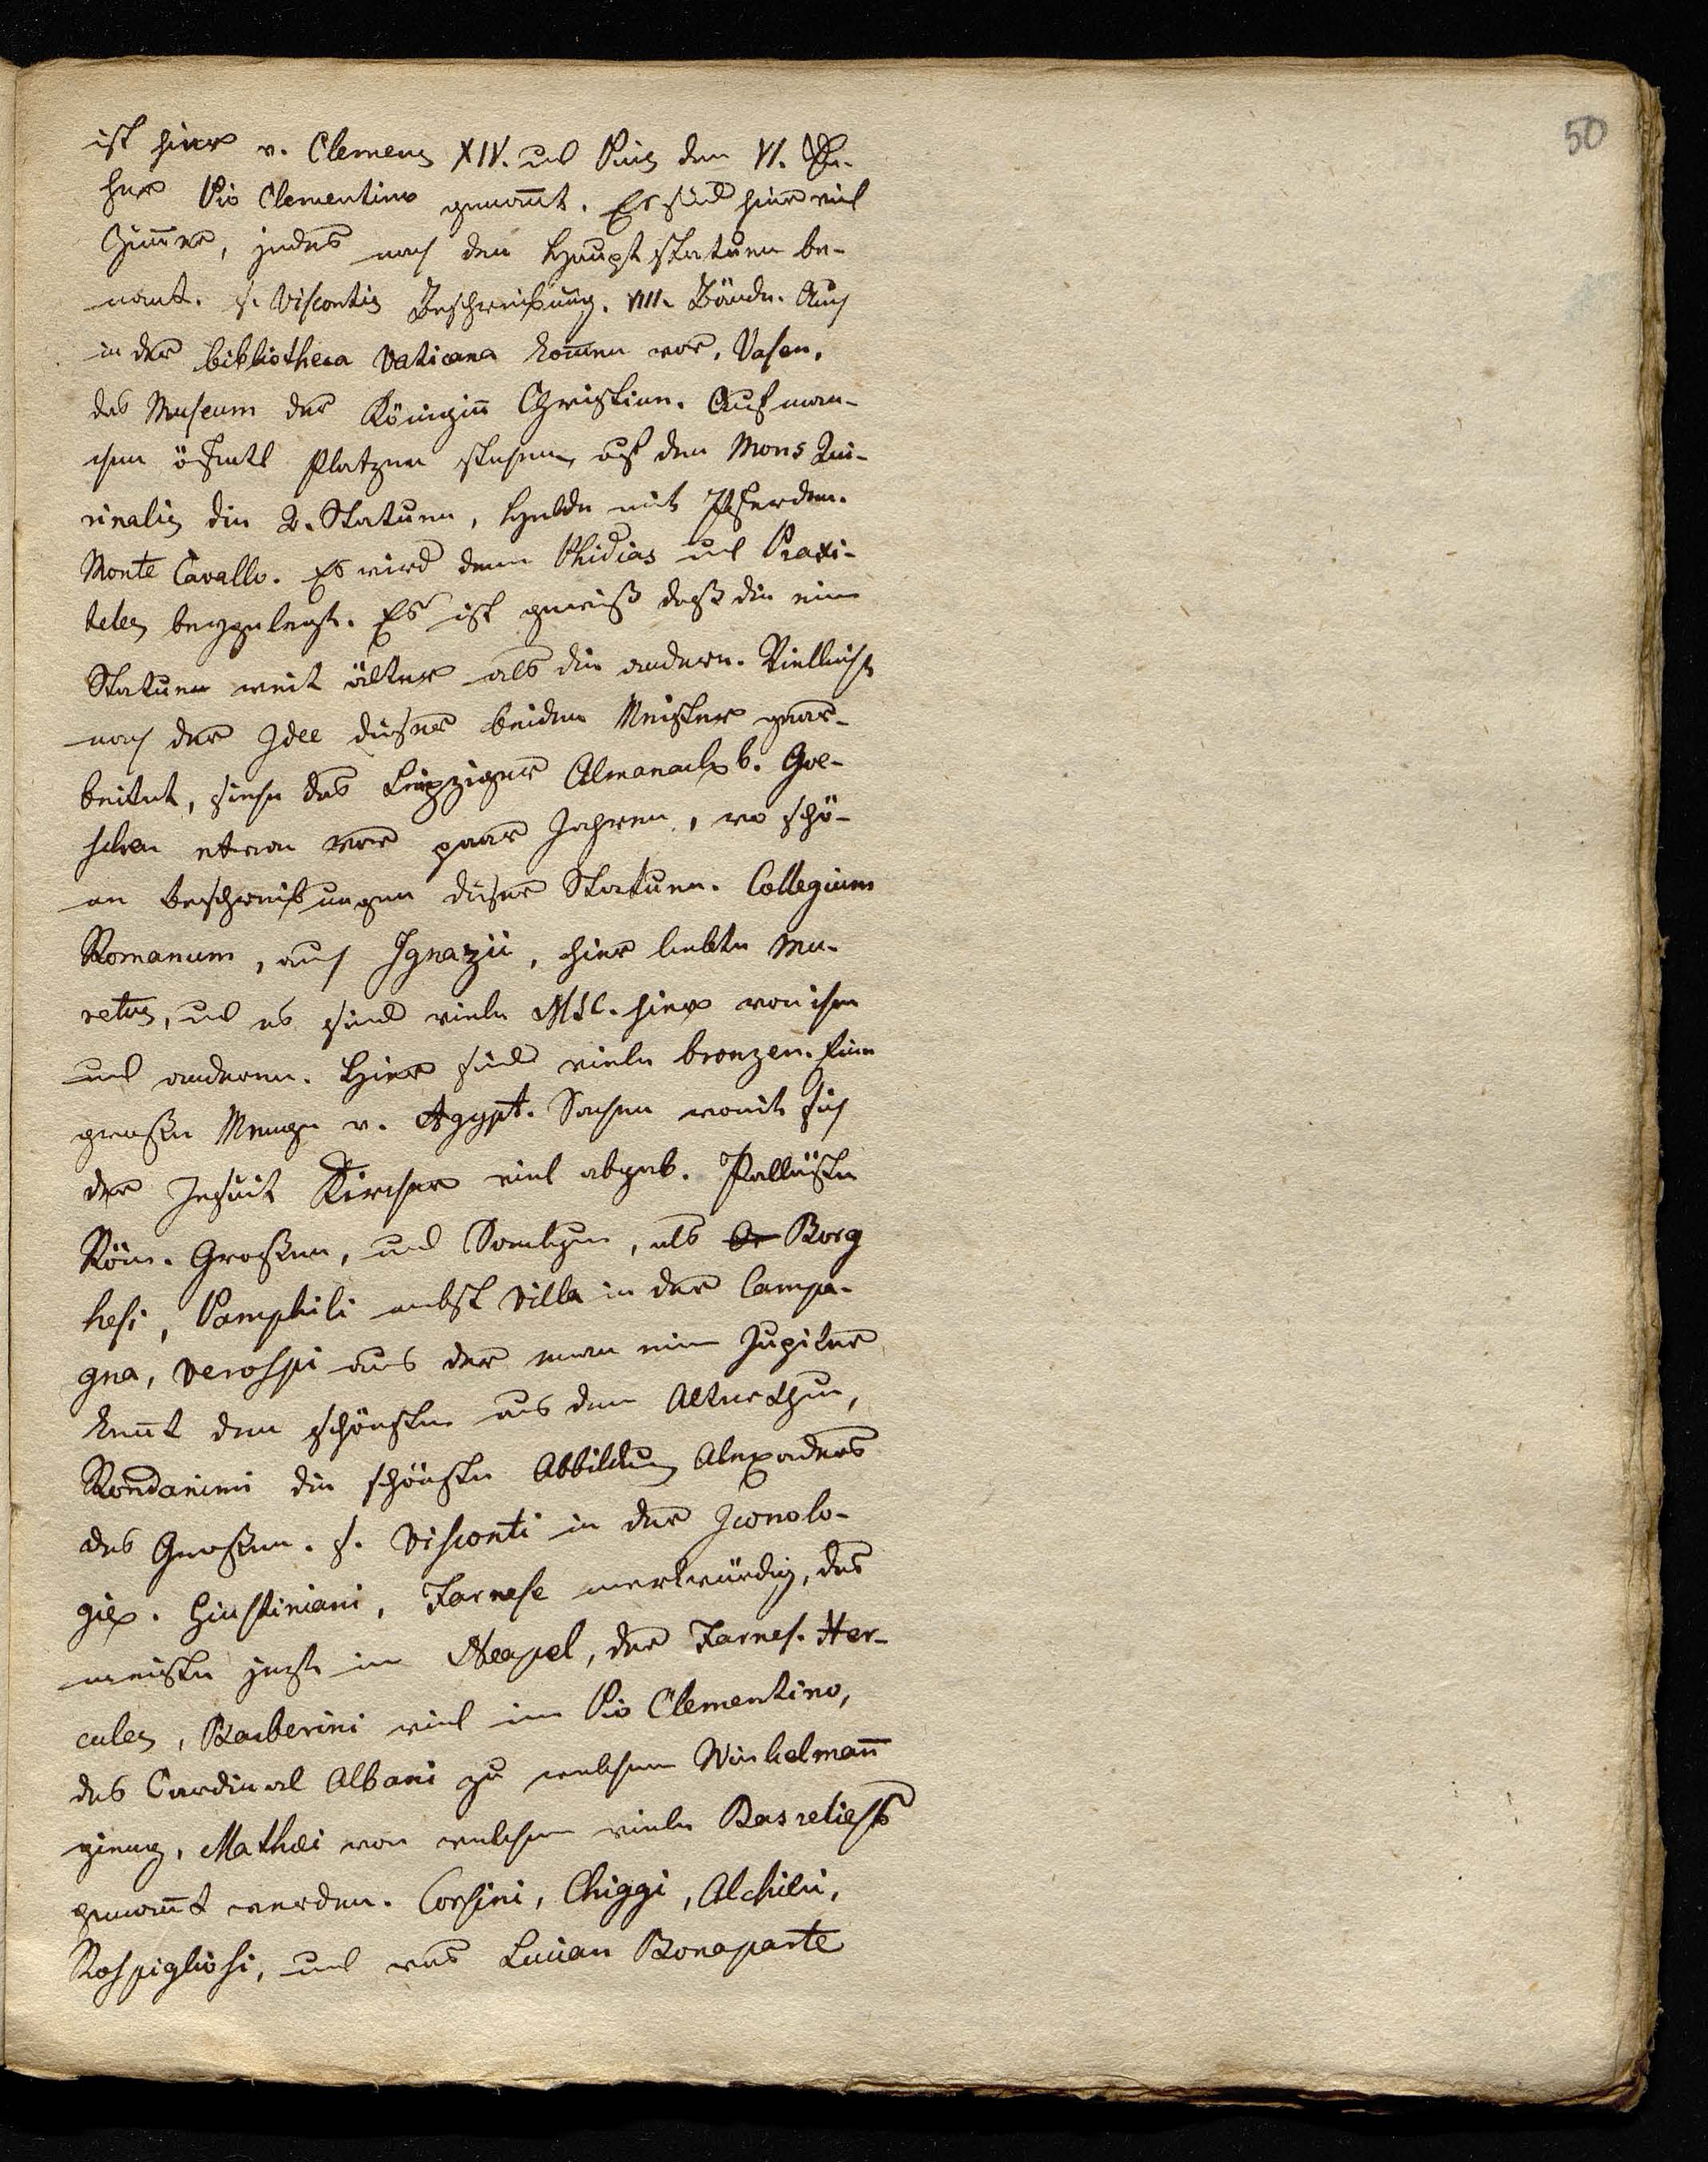 50
ist hier v. Clemens XIV. und Pius dem VI. Da-
her Pio Clementino genañt. Es sind hier viel
Zim̃er, jedes nach den Hauptstatuen be-
nant. s. Viscontis Beschreibung. VIII. Bände. Auch
in der bibliotheca Vaticana kom̃en vor, Vasen,
das Museum der Königiñ Christine. Auf man-
chen öffentl Platzen stehen, auf den Mons Qui-
rinalis die 2. Statuen, Helde mit Pferden.
Monte Cavallo. Es wird dem Phidias und Praxi-
teles beygelegt. Es ist gewiß daß die eine
Statuen weit älter als die andern. Vielleicht
nach der Idee dieser beiden Meister gear-
beitet, siehe das Leipziger Almanach b. Goe-
schen etwan vor paar Jahren, wo schö-
ne beschreibungen dieser Statuen. Collegium
Romanum, auch Ignazii, hier lebte Mu-
retus, und es sind viele MSC. hier von ihm
und anderen. Hier sind viele bronzen. Eine
große Menge v. Agypt. Sachen womit sich
der Jesuit Kircher viel abgab. Palläste
Röm. Großen, und Samlgen, als Borg
hesi, Pamphili nebst Villa in der Campa-
gna, Verospi aus der man ein Jupiter
keñt den schönsten aus dem Alterthum,
Rondanini die schönste Abbildung Alexanders
des Großen. s. Visconti in der Iconolo-
gie. Giustiniani, Farnese merkwürdig, das
meiste jezt in Neapel, der Farnes. Her-
cules, Barberini viel im Pio Clementino,
des Cardinal Albani zu welchem Winkelmañ
gieng, Mathæi von welchem viele Basreliefs
genañt werden. Corsini, Chiggi, Alchieri,
Rospigliosi, und was Lucian Bonaparte